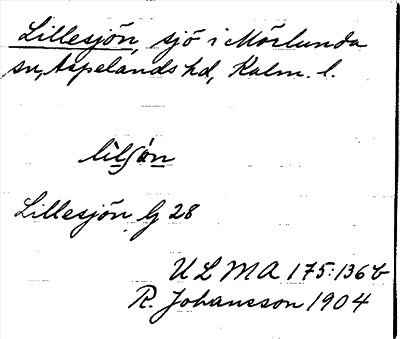 Lillesjön, sjö i Mörlunda
sn, Aspelands hd, Kalm. l.
lilʃön
Lillesjön G 28
ULMA 175:136 b
R. Johansson 1904